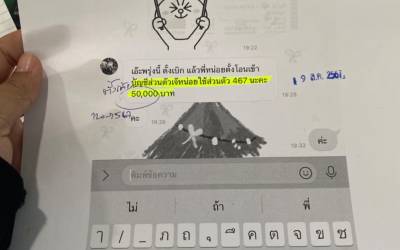 19:22
เอ๊ะพรุ่งนี้ ตั้งเบิก แล้วพี่หน่อยตั้งโอนเข้า
บัญชีส่วนตัวเจ๊หน่อยใช้ส่วนตัว 467 นะคะ
50,000 บาท
19:28
คะ
19:28
19:33
ค่ะ
พิมพ์ข้อความ
ไม่
ถ้า
พี่
ๅ / _ ภ ถ ุ ึ ค ต จ ข ช